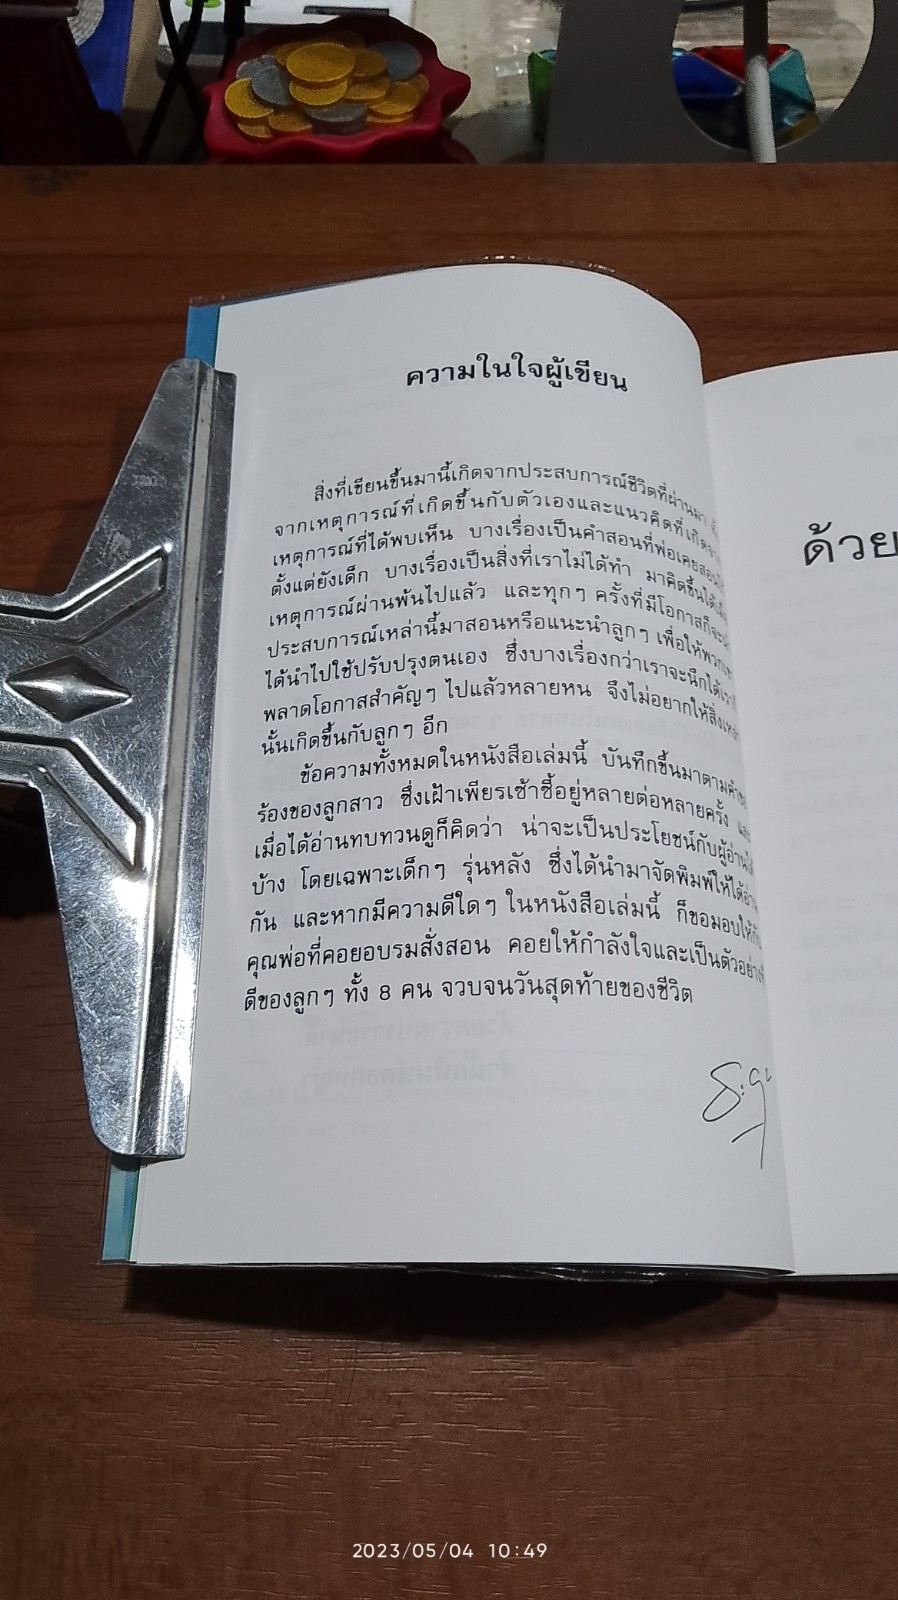 ความในใจผู้เขียน
สิ่งที่เขียนขึ้นมานี้เกิดจากประสบการณ์ชีวิตที่ผ่านมา
จากเหตุการณ์ที่เกิดขึ้นกับตัวเองและแนวคิดที่เกิดจาก
เหตุการณ์ที่ได้พบเห็น บางเรื่องเป็นคำสอนที่พ่อเคยสอน
ตั้งแต่ยังเด็ก บางเรื่องเป็นสิ่งที่เราไม่ได้ทำ มาคิดขึ้นได้
เหตุการณ์ผ่านพ้นไปแล้ว และทุกๆ ครั้งที่มีโอกาสก็จะ
ประสบการณ์เหล่านี้มาสอนหรือแนะนำลูกๆ เพื่อให้
ได้นำไปใช้ปรับปรุงตนเอง ซึ่งบางเรื่องกว่าเราจะนึกได้
พลาดโอกาสสำคัญๆ ไปแล้วหลายหน จึงไม่อยากให้สิ่ง
นั้นเกิดขึ้นกับลูกๆ อีก
ข้อความทั้งหมดในหนังสือเล่มนี้ บันทึกขึ้นมาตาม
ร้องของลูกสาว ซึ่งเฝ้าเพียรเซ้าซี้อยู่หลายต่อหลายครั้ง
เมื่อได้อ่านทบทวนดูก็คิดว่า น่าจะเป็นประโยชน์กับผู้อ่าน
บ้าง โดยเฉพาะเด็กๆ รุ่นหลัง ซึ่งได้นำมาจัดพิมพ์ให้ได้อ่าน
กัน และหากมีความดีใดๆ ในหนังสือเล่มนี้ ก็ขอมอบให้กับ
คุณพ่อที่คอยอบรมสั่งสอน คอยให้กำลังใจและเป็นตัวอย่าง
ดีของลูกๆ ทั้ง 8 คน จวบจนวันสุดท้ายของชีวิต
ด้วย
2023/05/04 10:49